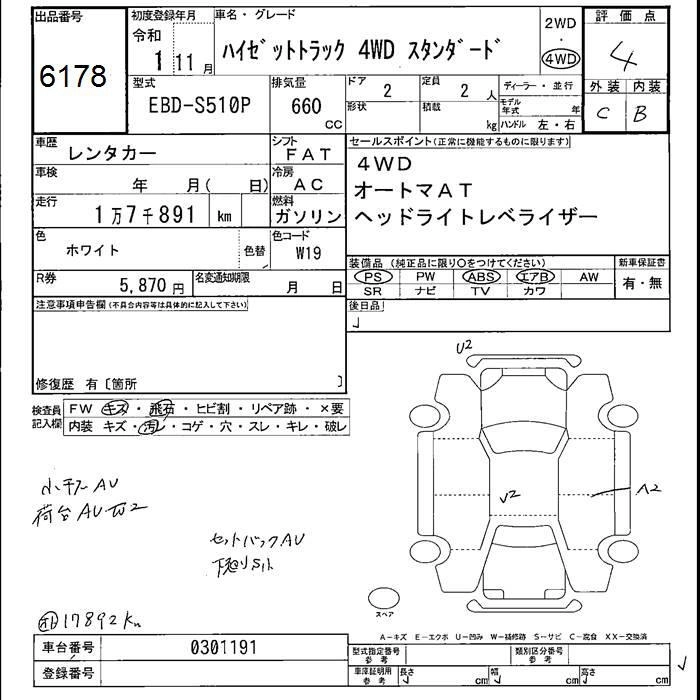 出品番号 初度登録年月 車名・グレード 2WD ・ 4WD 評価点
6178 令和 1 11月 ハイゼットトラック 4WD スタンダード 4
型式 排気量 ドア 定員 ディーラー・並行 外装 内装
EBD-S510P 660 CC 2 2人 モデル年式 年 C B
形状 積載 kg ハンドル 左・右
車歴 レンタカー シフト FAT セールスポイント(正常に機能するものに限ります)
車検 年 月( 日) 冷房 AC 4WD
オートマAT
走行 1万7千891 km 燃料 ガソリン ヘッドライトレベライザー
色 ホワイト 色替 色コード W19
装備品 (純正品に限り○をつけてください) 新車保証書
PS PW ABS エアB AW 有・無
SR ナビ TV カワ
R券 5,870円 名変通知期限 月 日
注意事項申告欄(不具合内容等は具体的に記入して下さい) 後日品
修復歴 有〔箇所 〕
検査員記入欄 FW キズ・飛石・ヒビ割・リペア跡・×要
内装 キズ・汚レ・コゲ・穴・スレ・キレ・破レ
U2
A2
U2
小キズAU
荷台AU
セットバックAU
下廻りS
17892km
スペア
A-キズ E-エクボ U-凹み W-補修跡 S-サビ C-腐食 XX-交換済
車台番号 0301191 型式指定番号 参考 類別区分番号 参考
登録番号 車庫証明用 参考 長さ cm 幅 cm 高さ cm